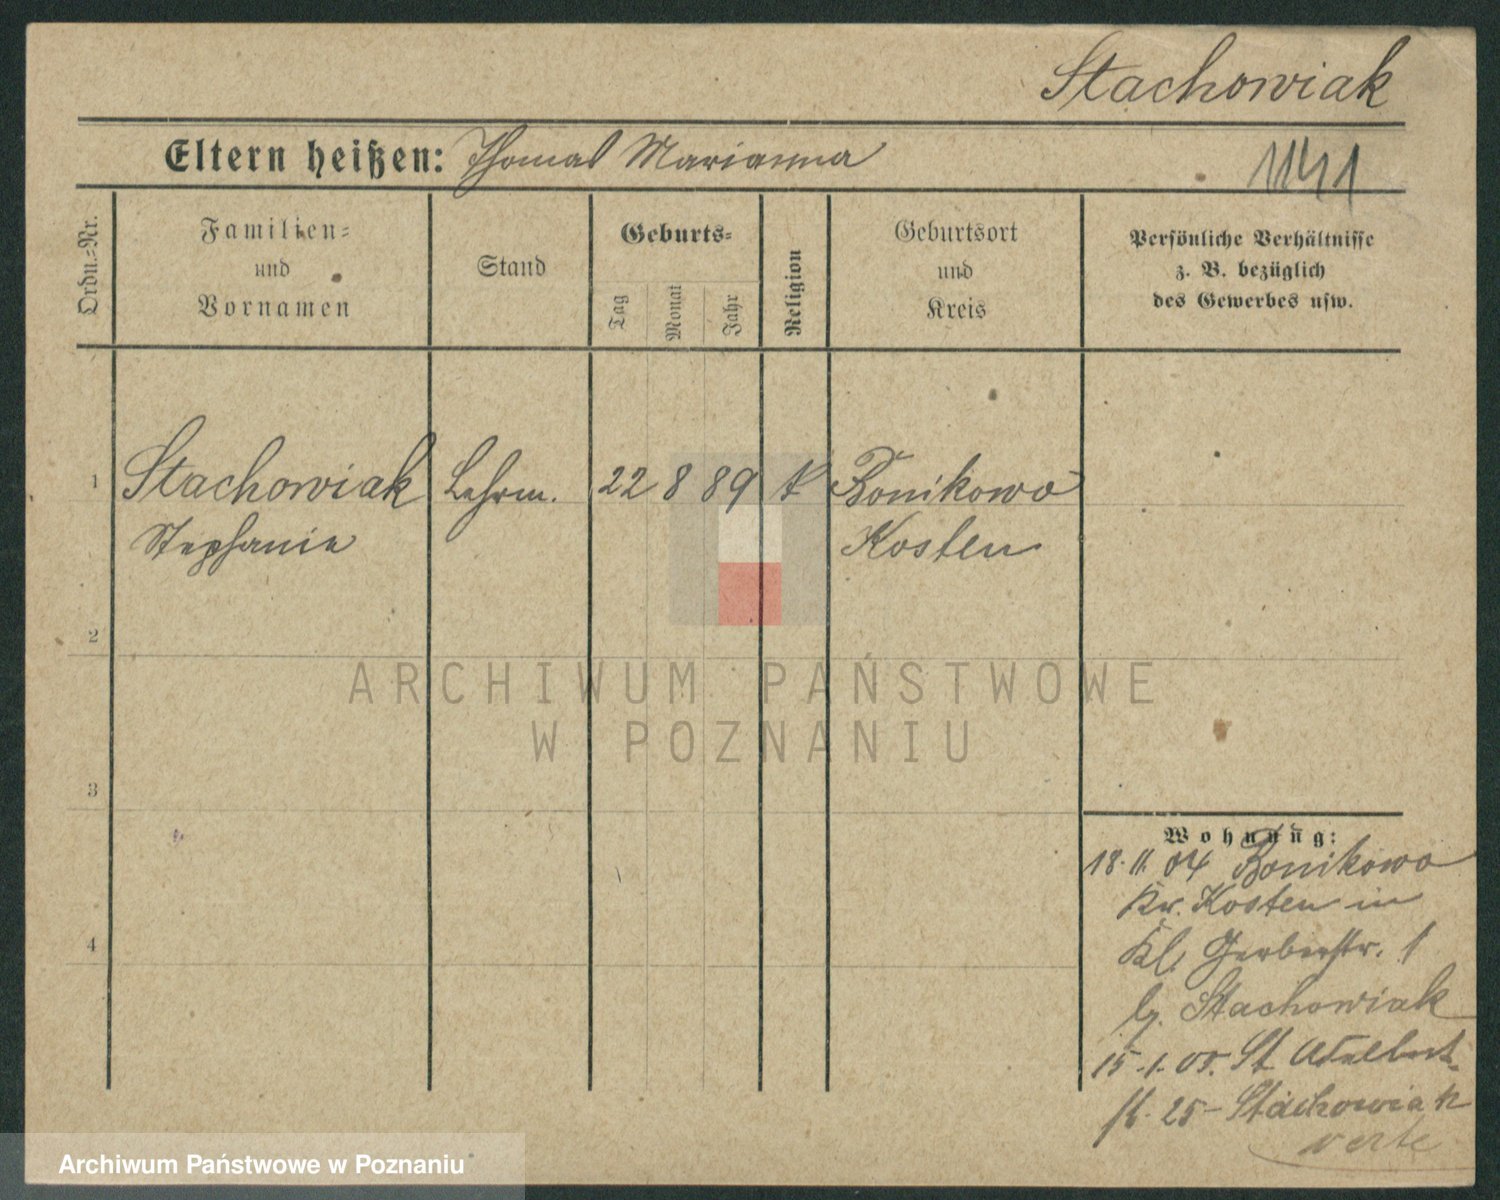 Stachowiak
Eltern heißen: Thomas Marianna
1141
Ordn.-Nr.
Familien-
und
Vornamen
Stand
Geburts-
Tag
Monat
Jahr
Religion
Geburtsort
und
Kreis
Persönliche Verhältnisse
z. B. bezüglich
des Gewerbes usw.
1 Stachowiak Lehrm. 22 8 89 k Bonikowo
Stephanie Kosten
2
3
4
Wohnung:
18. 11. 04 Bonikowo
Kr. Kosten in
Kl. Gerberstr. 1
b. Stachowiak
15. 1. 05. St. Adalbert-
st. 25 - Stachowiak
verte
ARCHIWUM PAŃSTWOWE
W POZNANIU
Archiwum Państwowe w Poznaniu